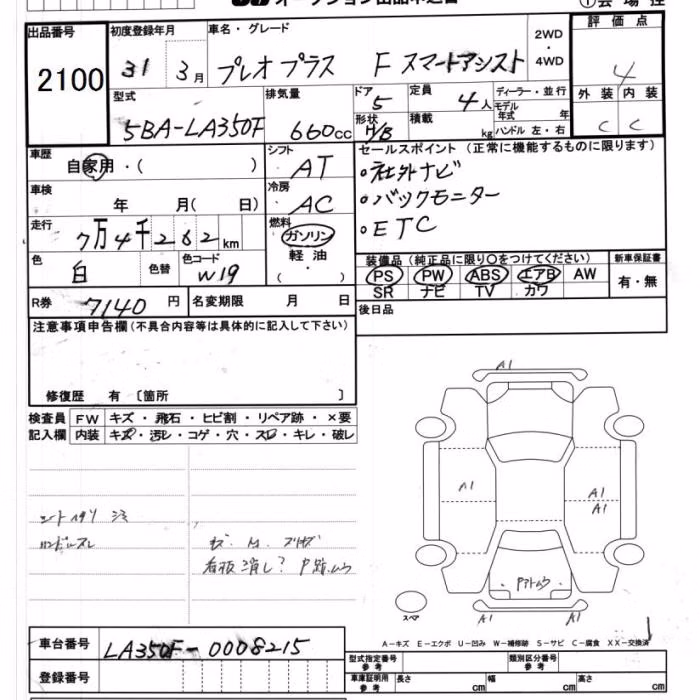 出品番号
2100
初度登録年月
31 3月
車名・グレード
プレオプラス F スマートアシスト
2WD
・
4WD
評価点
4
外装 内装
C C
型式
5BA-LA350F
排気量
660cc
ドア
5
形状
H/B
定員
4人
積載
kg
ディーラー・並行
モデル
年式 年
ハンドル 左・右
車歴
自家用・( )
シフト
AT
車検
年 月( 日)
冷房
AC
走行
7万4千262km
燃料
ガソリン
軽油
( ・ )
色
白
色替
色コード
W19
R券
7140円
名変期限 月 日
セールスポイント (正常に機能するものに限ります)
・社外ナビ
・バックモニター
・ETC
装備品 (純正品に限り○をつけてください)
PS PW ABS エアB AW
SR ナビ TV カワ
新車保証書
有・無
後日品
注意事項申告欄(不具合内容等は具体的に記入して下さい)
修復歴 有 〔箇所 〕
検査員
記入欄
FW キズ・飛石・ヒビ割・リペア跡・×要
内装 キズ・汚レ・コゲ・穴・スレ・キレ・破レ
A1
A1
A1
A1
A1
A1
スペア
A-キズ E-エクボ U-凹み W-補修跡 S-サビ C-腐食 XX-交換済
車台番号
LA350F-0008215
登録番号
型式指定番号
参考
類別区分番号
参考
車庫証明用
参考
長さ cm
幅 cm
高さ cm